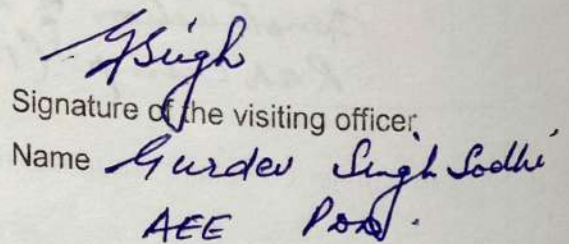 GSingh
Signature of the visiting officer
Name Gurdev Singh Sodhi
AEE PDD.